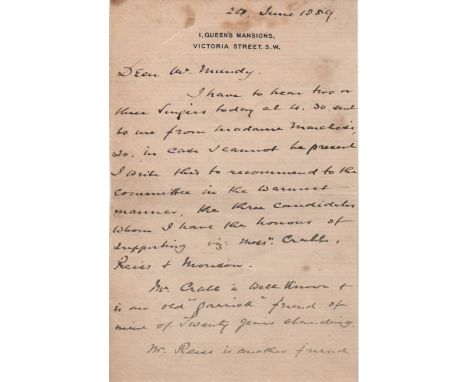 24 June 1889.
1, QUEEN'S MANSIONS,
VICTORIA STREET. S.W.
Dear Mr. Mundy.
I have to hear two or
three Singers today at 4.30 sent
to me from Madame Marchesi,
So, in case I cannot be present
I write this to recommend to the
Committee in the warmest
manner, the three Candidates
whom I have the honour of
supporting viz. Messrs. Crabb,
Reiss & Monson.
Mr. Crabb is well known &
is an old "Garrick" friend of
mine of Twenty years standing.
Mr. Reiss is another friend